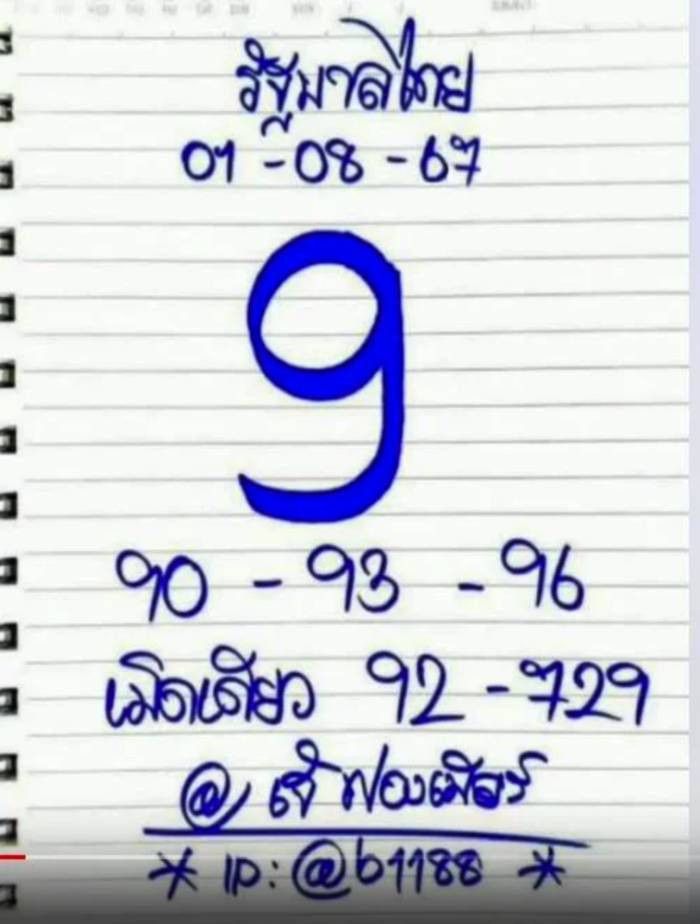 รัฐบาลไทย
01-08-67
9
90-93-96
เม็ดเดียว 92-729
@เจ๊ฟองเบียร์
* ID:@b1188 *